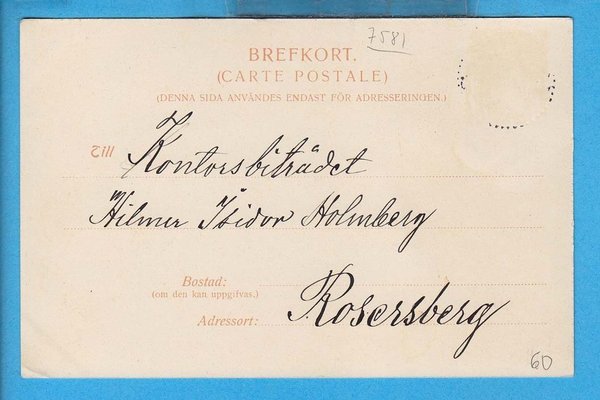 7581
BREFKORT.
(CARTE POSTALE)
(DENNA SIDA ANVÄNDES ENDAST FÖR ADRESSERINGEN.)
Till Kontorsbiträdet
Hilmer Isidor Holmberg
Bostad:
(om den kan uppgifvas.)
Rosersberg
Adressort:
60